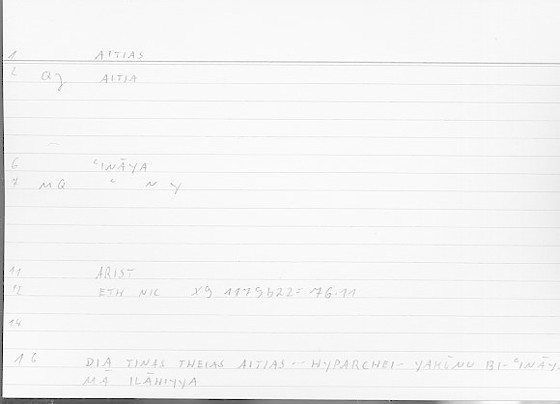 1 AITIAS
2 Qj AITIA
6 ʿINĀYA
7 MQ ʿ N Y
11 ARIST
12 ETH NIC X9 1179b22 = 76.11
14
16 DIA TINAS THEIAS AITIAS -- HYPARCHEI -- YAKŪNU BI-ʿINĀY-
MĀ ILĀHIYYA